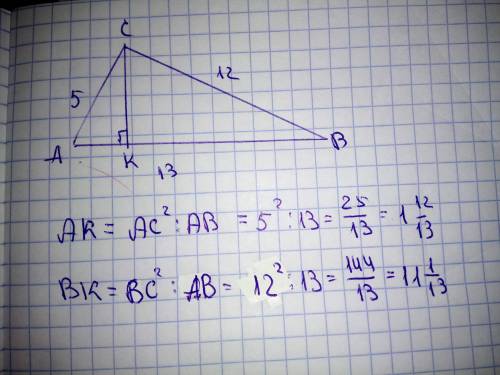 C
5
12
A
K
B
13
AK = AC² : AB = 5² : 13 = 25/13 = 1 12/13
BK = BC² : AB = 12² : 13 = 144/13 = 11 1/13